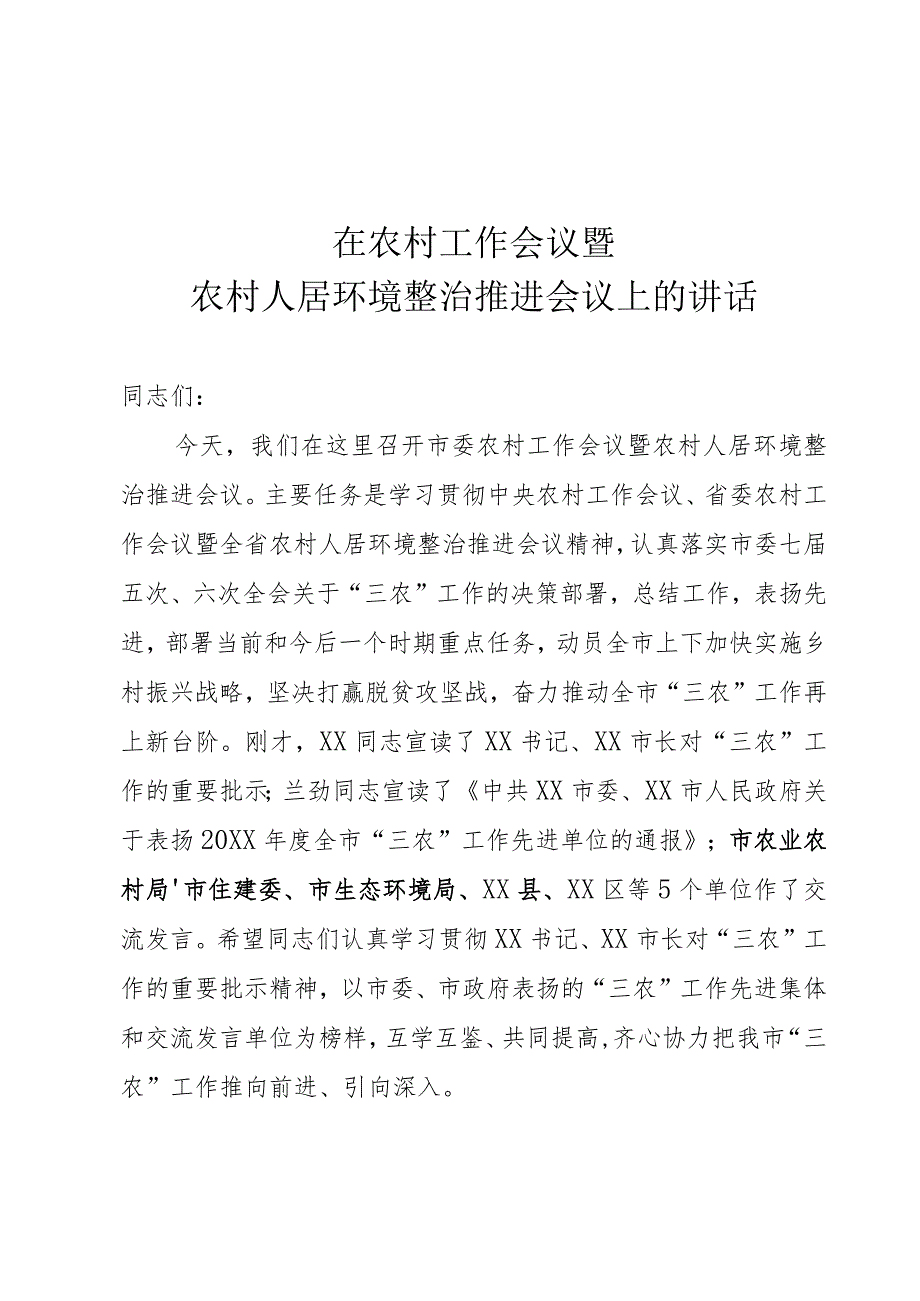 在农村工作会议暨
农村人居环境整治推进会议上的讲话
同志们：
今天，我们在这里召开市委农村工作会议暨农村人居环境整
治推进会议。主要任务是学习贯彻中央农村工作会议、省委农村工
作会议暨全省农村人居环境整治推进会议精神，认真落实市委七届
五次、六次全会关于“三农”工作的决策部署，总结工作，表扬先
进，部署当前和今后一个时期重点任务，动员全市上下加快实施乡
村振兴战略，坚决打赢脱贫攻坚战，奋力推动全市“三农”工作再
上新台阶。刚才，XX 同志宣读了 XX 书记、XX 市长对“三农”工
作的重要批示；兰劲同志宣读了《中共 XX 市委、XX 市人民政府关
于表扬 20XX 年度全市“三农”工作先进单位的通报》；市农业农
村局'市住建委、市生态环境局、XX 县、XX 区等 5 个单位作了交
流发言。希望同志们认真学习贯彻 XX 书记、XX 市长对“三农”工
作的重要批示精神，以市委、市政府表扬的“三农”工作先进集体
和交流发言单位为榜样，互学互鉴、共同提高,齐心协力把我市“三
农”工作推向前进、引向深入。